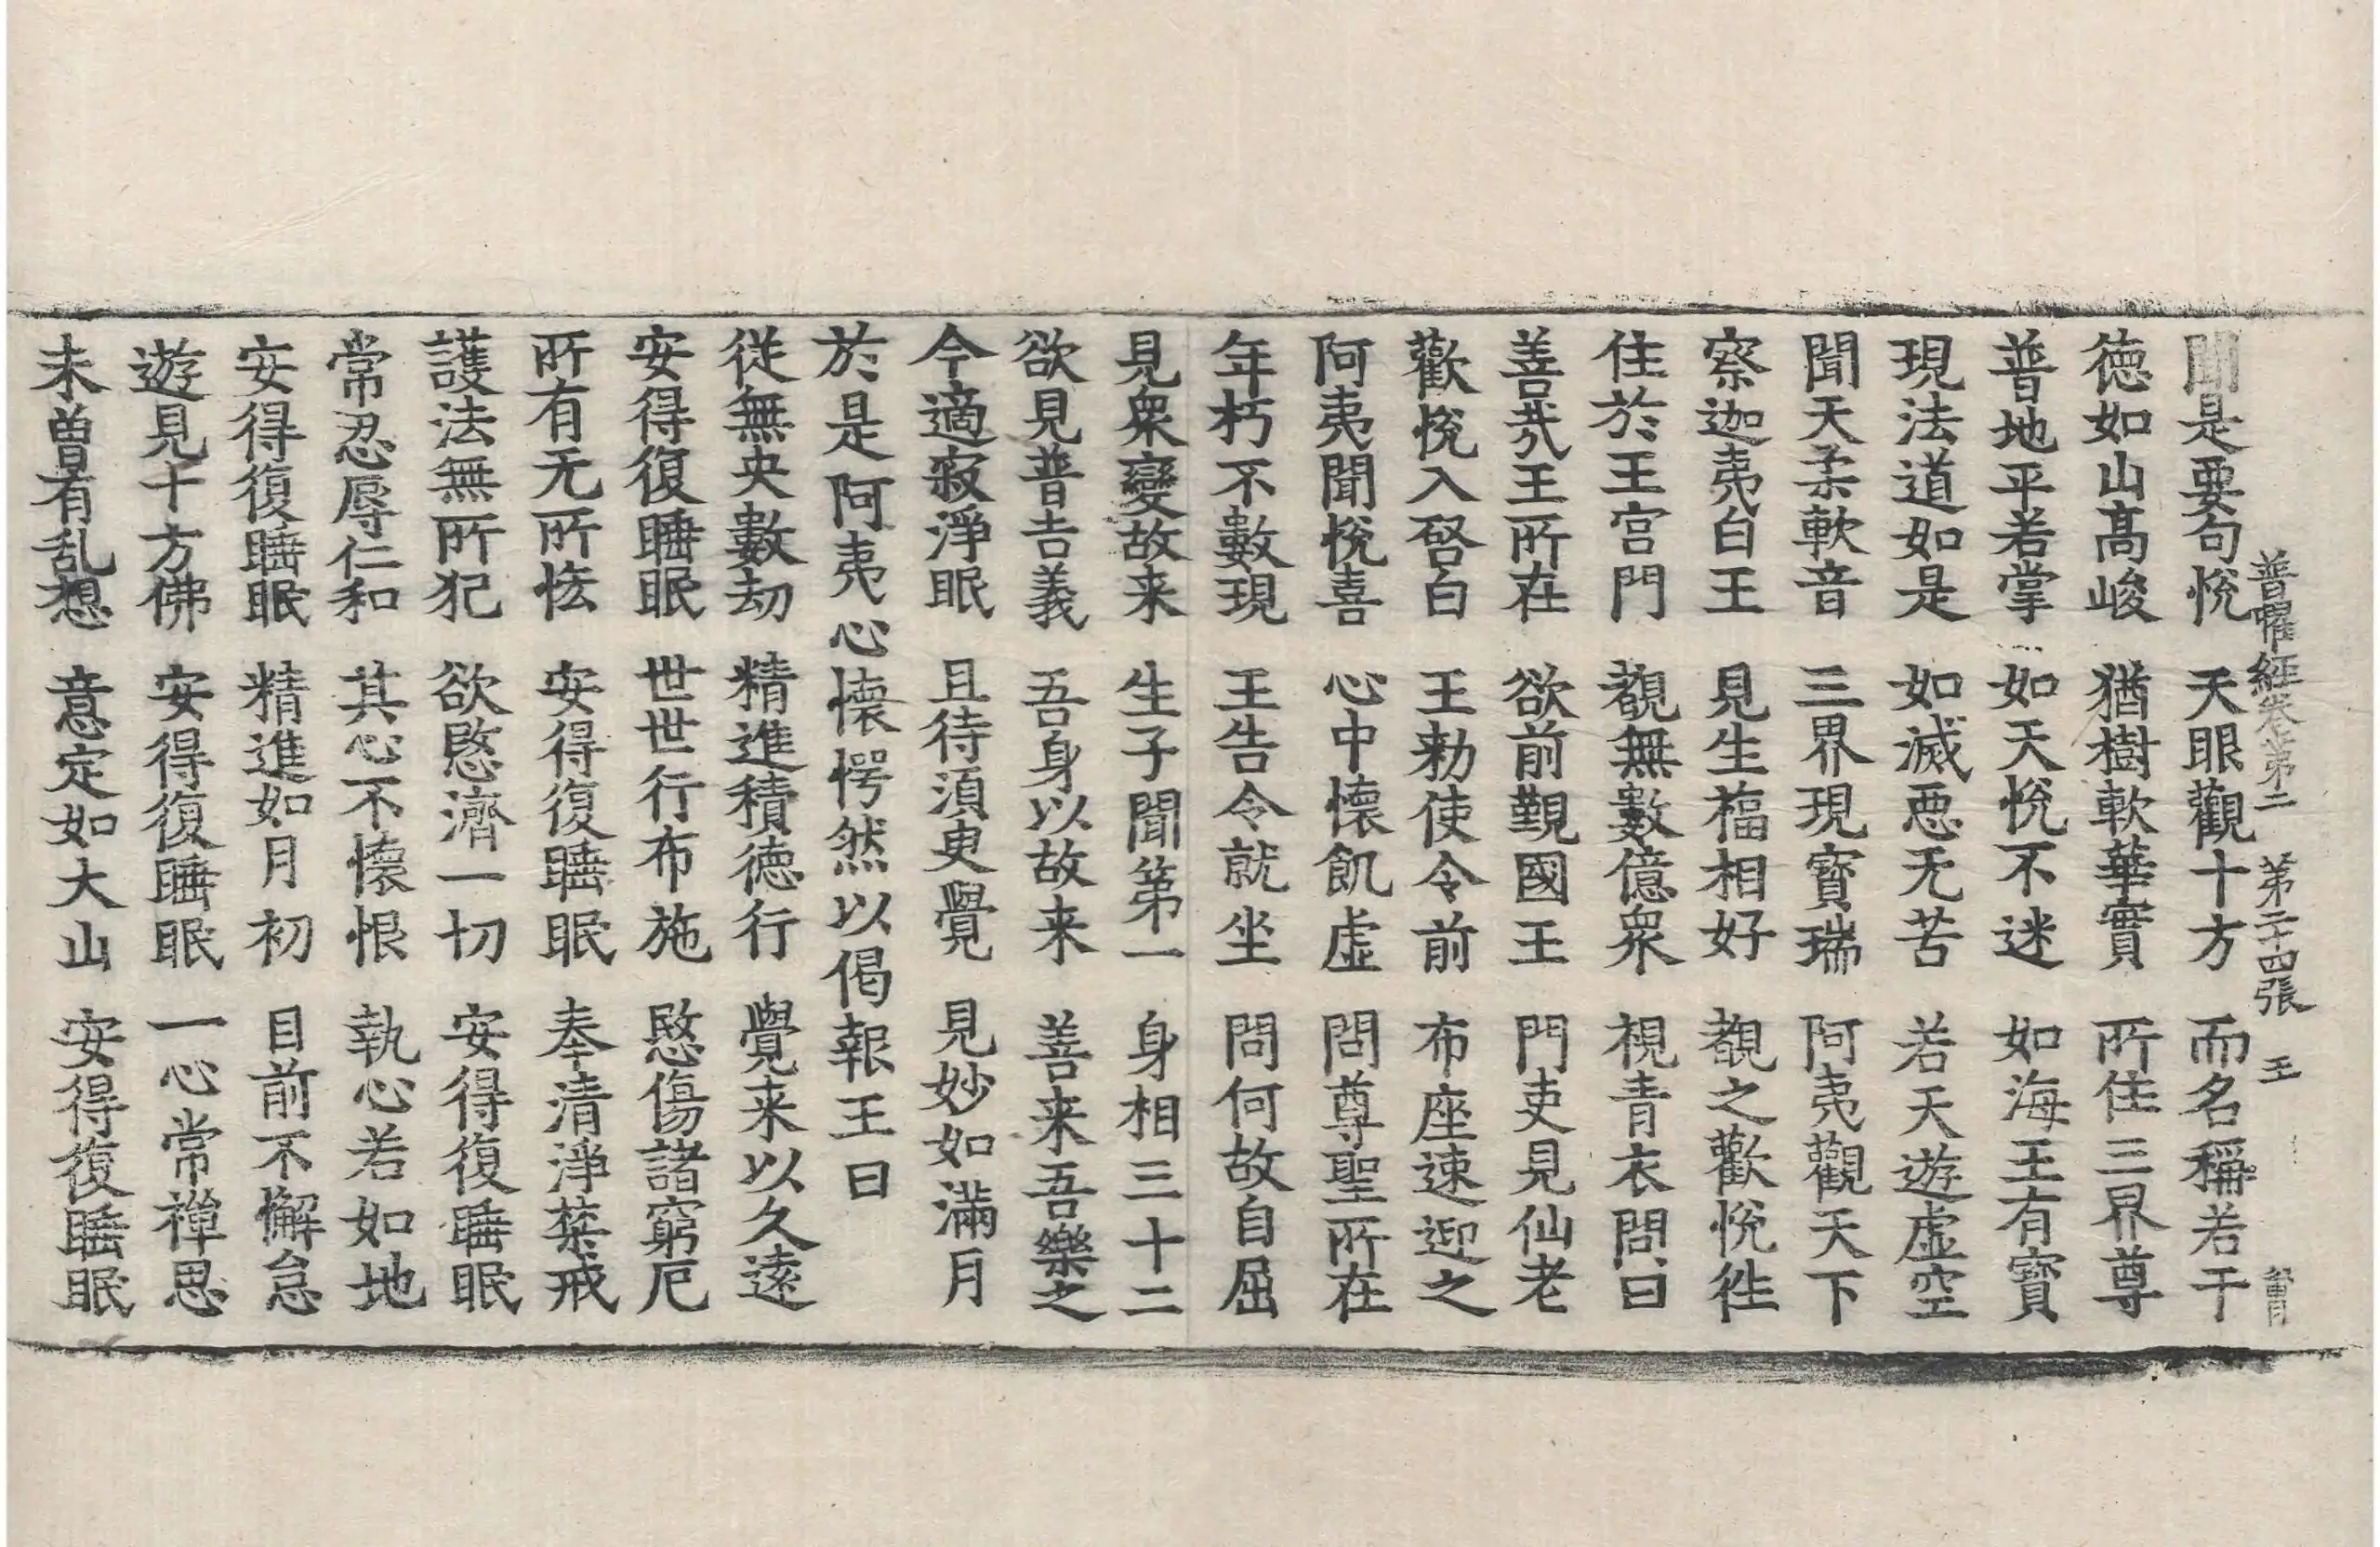 普曜經卷第二 第二十四張 王
聞是要句悅 天眼觀十方 而名稱若干
德如山高峻 猶樹軟華實 所住三界尊
普地平若掌 如天悅不迷 如海王有寶
現法道如是 如滅惡无苦 若天遊虛空
聞天柔軟音 三界現寳瑞 阿夷觀天下
察迦夷白王 見生福相好 覩之歡悅徃
住於王宮門 覩無數億衆 視青衣問曰
善哉王所在 欲前覲國王 門吏見仙老
歡悅入啓白 王勑使令前 布座速迎之
阿夷聞悅喜 心中懷飢虛 問尊聖所在
年朽不數現 王告令就坐 問何故自屈
見衆變故来 生子聞第一 身相三十二
欲見普吉義 吾身以故来 善来吾樂之
今適寂淨眠 且待須臾覺 見妙如滿月
於是阿夷心懷愕然以偈報王曰
從無央數劫 精進積德行 覺来以久遠
安得復睡眠 世世行布施 愍傷諸窮厄
所有无所恡 安得復睡眠 奉清淨禁戒
護法無所犯 欲愍濟一切 安得復睡眠
常忍辱仁和 其心不懷恨 執心若如地
安得復睡眠 精進如月初 目前不懈怠
遊見十方佛 安得復睡眠 一心常禪思
未曾有乱想 意定如大山 安得復睡眠